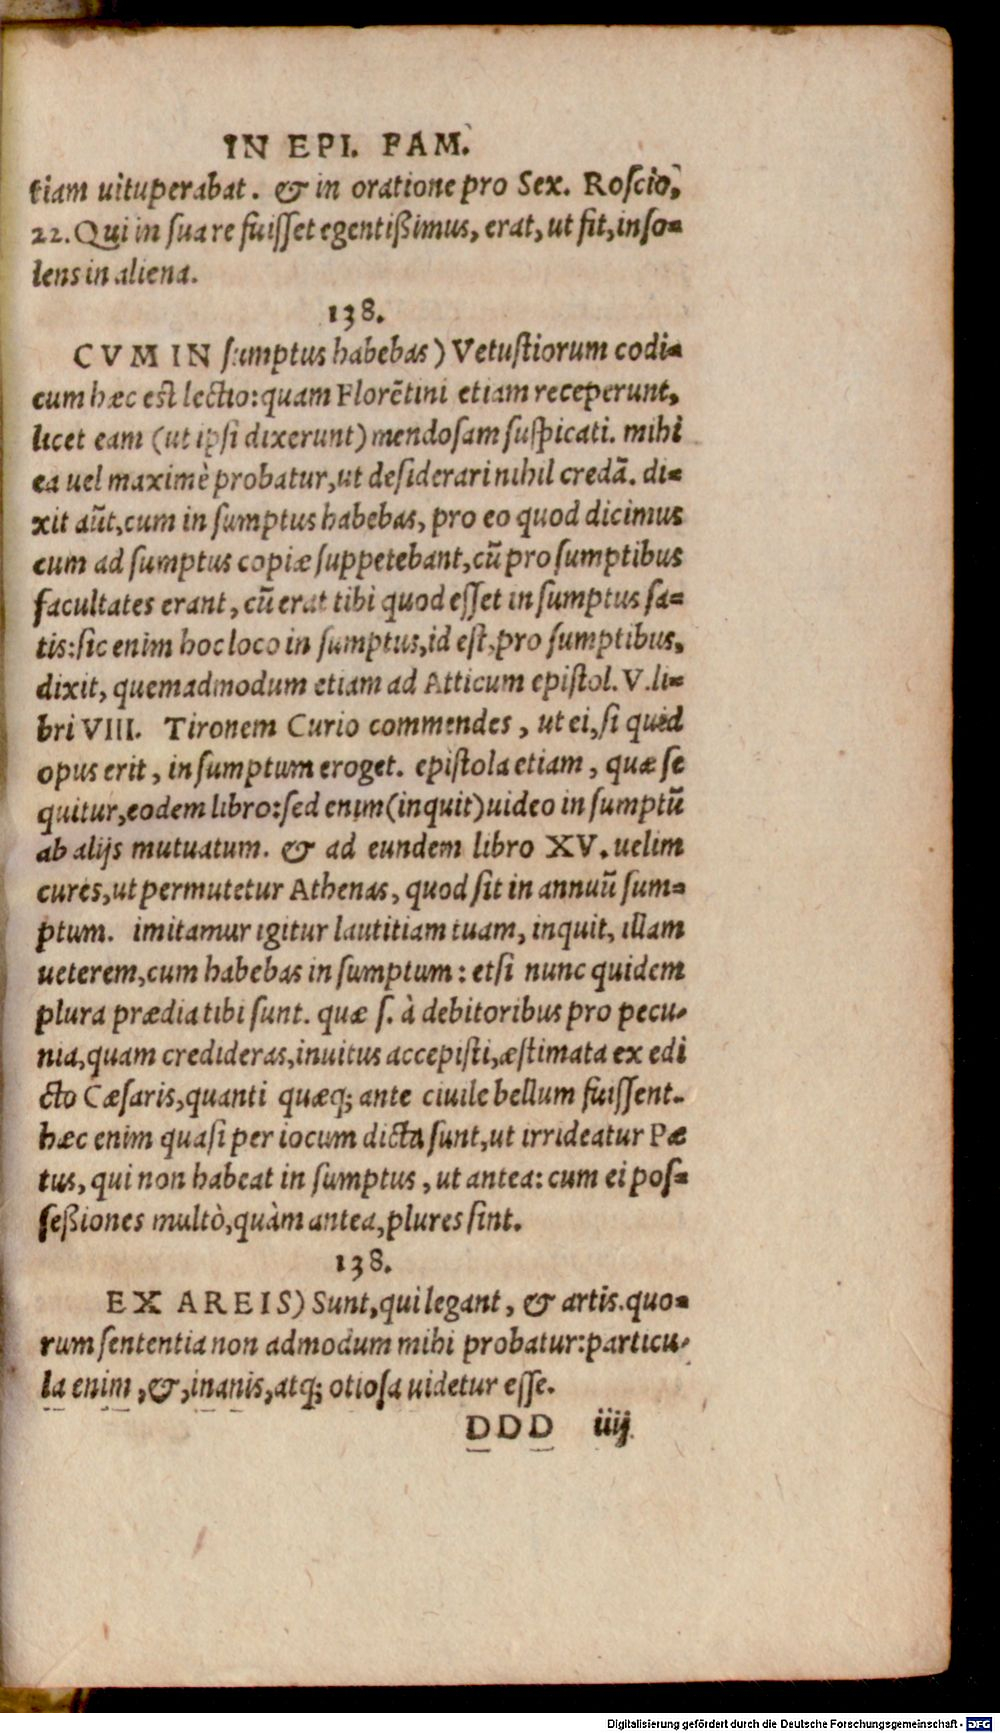 IN EPI. FAM.
tiam uituperabat. & in oratione pro Sex. Roscio,
22. Qui in sua re fuisset egentißimus, erat, ut fit, inso-
lens in aliena.
138.
CVM IN sumptus habebas) Vetustiorum codi-
cum hæc est lectio: quam Florẽtini etiam receperunt,
licet eam (ut ipsi dixerunt) mendosam suspicati. mihi
ea uel maximè probatur, ut desiderari nihil credã. di-
xit aũt, cum in sumptus habebas, pro eo quod dicimus
cum ad sumptus copiæ suppetebant, cũ pro sumptibus
facultates erant, cũ erat tibi quod esset in sumptus sa-
tis: sic enim hoc loco in sumptus, id est, pro sumptibus,
dixit, quemadmodum etiam ad Atticum epistol. V. li-
bri VIII. Tironem Curio commendes, ut ei, si quid
opus erit, in sumptum eroget. epistola etiam, quæ se
quitur, eodem libro: sed enim (inquit) uideo in sumptũ
ab alijs mutuatum. & ad eundem libro XV. uelim
cures, ut permutetur Athenas, quod sit in annuũ sum-
ptum. imitamur igitur lautitiam tuam, inquit, illam
ueterem, cum habebas in sumptum: etsi nunc quidem
plura prædia tibi sunt. quæ s. à debitoribus pro pecu-
nia, quam credideras, inuitus accepisti, æstimata ex edi
cto Cæsaris, quanti quæq; ante ciuile bellum fuissent.
hæc enim quasi per iocum dicta sunt, ut irrideatur Pæ
tus, qui non habeat in sumptus, ut antea: cum ei pos-
seßiones multò, quàm antea, plures sint.
138.
EX AREIS) Sunt, qui legant, & artis. quo-
rum sententia non admodum mihi probatur: particu-
la enim, &, inanis, atq; otiosa uidetur esse.
DDD iiij
Digitalisierung gefördert durch die Deutsche Forschungsgemeinschaft - DFG